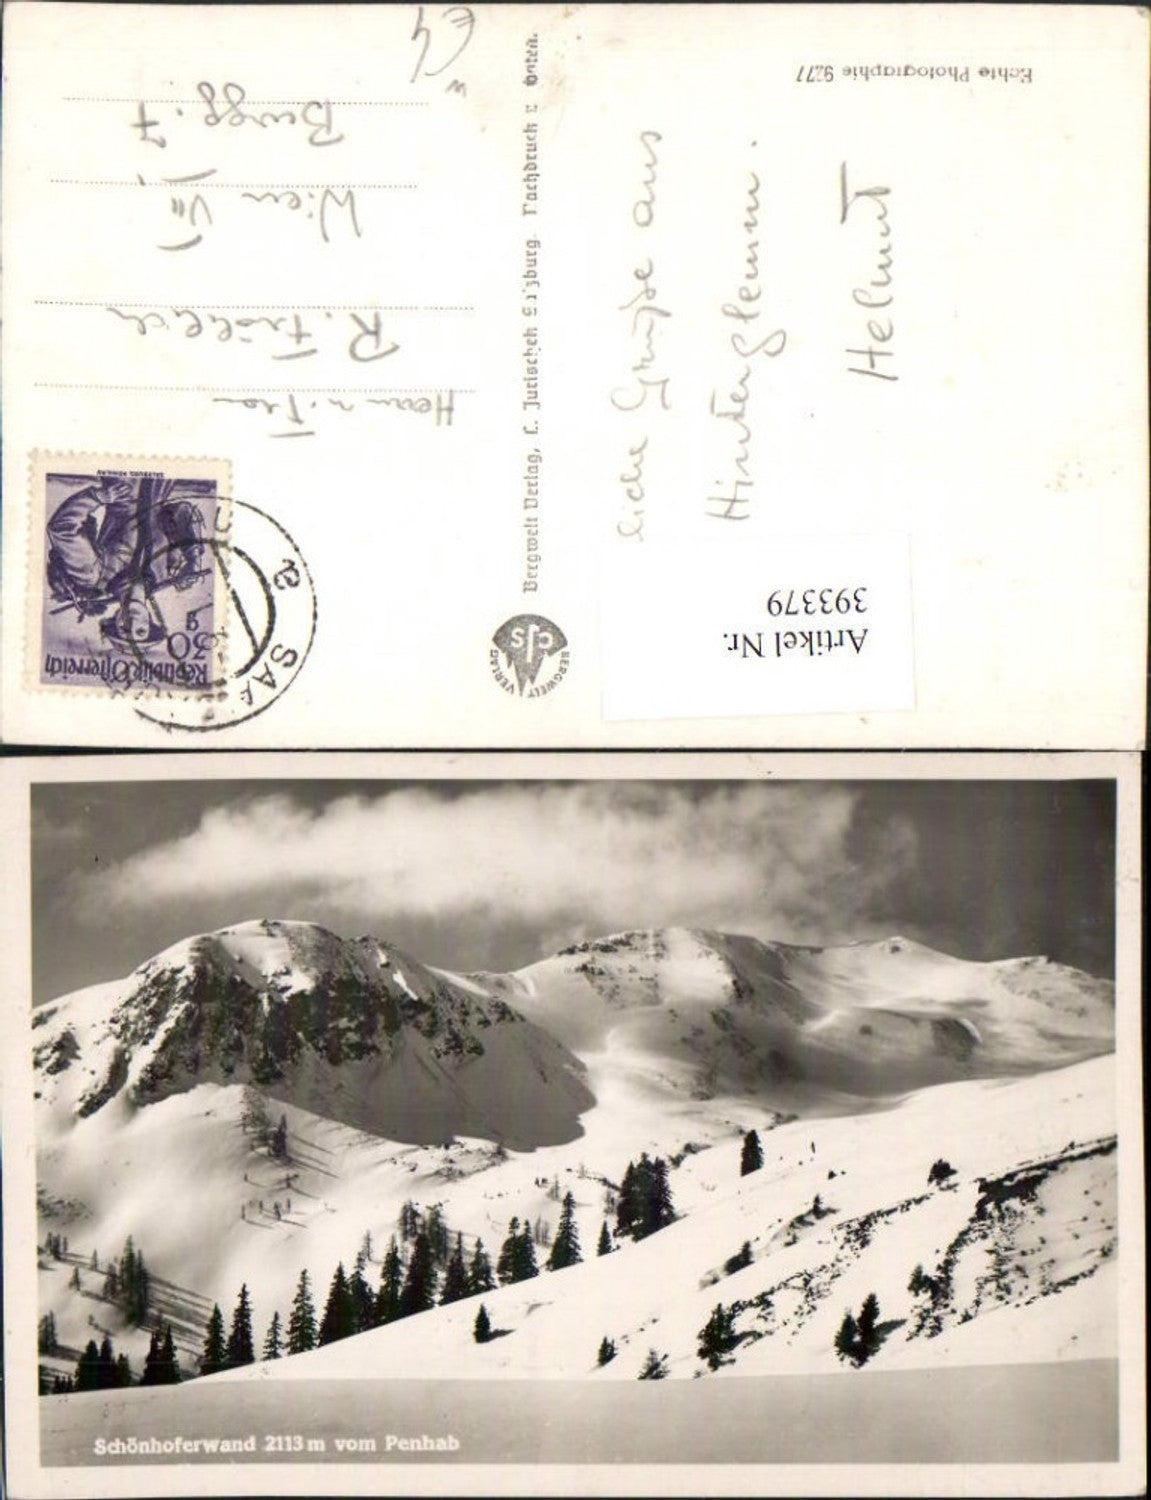 Echte Photographie 9277
liche Grüße aus
Hinterglemm.
Helmut
Artikel Nr.
393379
Bergwelt Verlag, C. Jurischek Salzburg. Nachdruck verboten.
BERGWELT VERLAG
CJS
Republik Österreich
30
g
SALZBURG, RÖMLAU
SAA
Herrn u. Frau
R. Fröhlich
Wien VII,
Burgg. 7
Schönhoferwand 2113 m vom Penhab